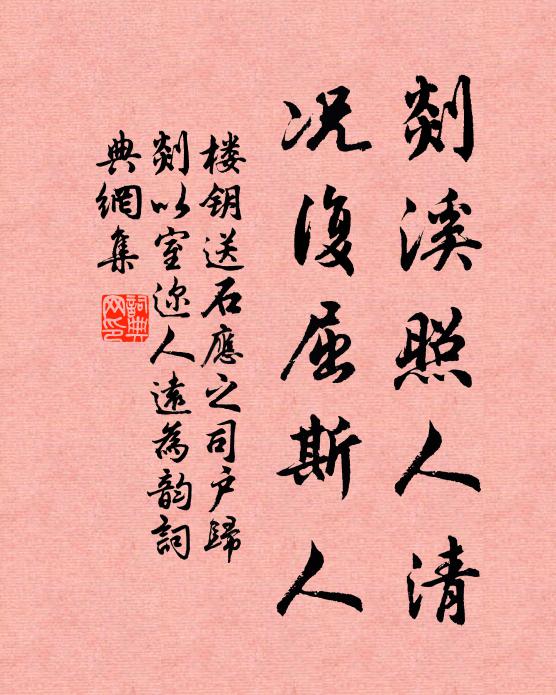 剡溪照人清
况復屈斯人
楼钥送石應之司户歸
剡以室迩人遠為韵詞
典網集
詞典
网印